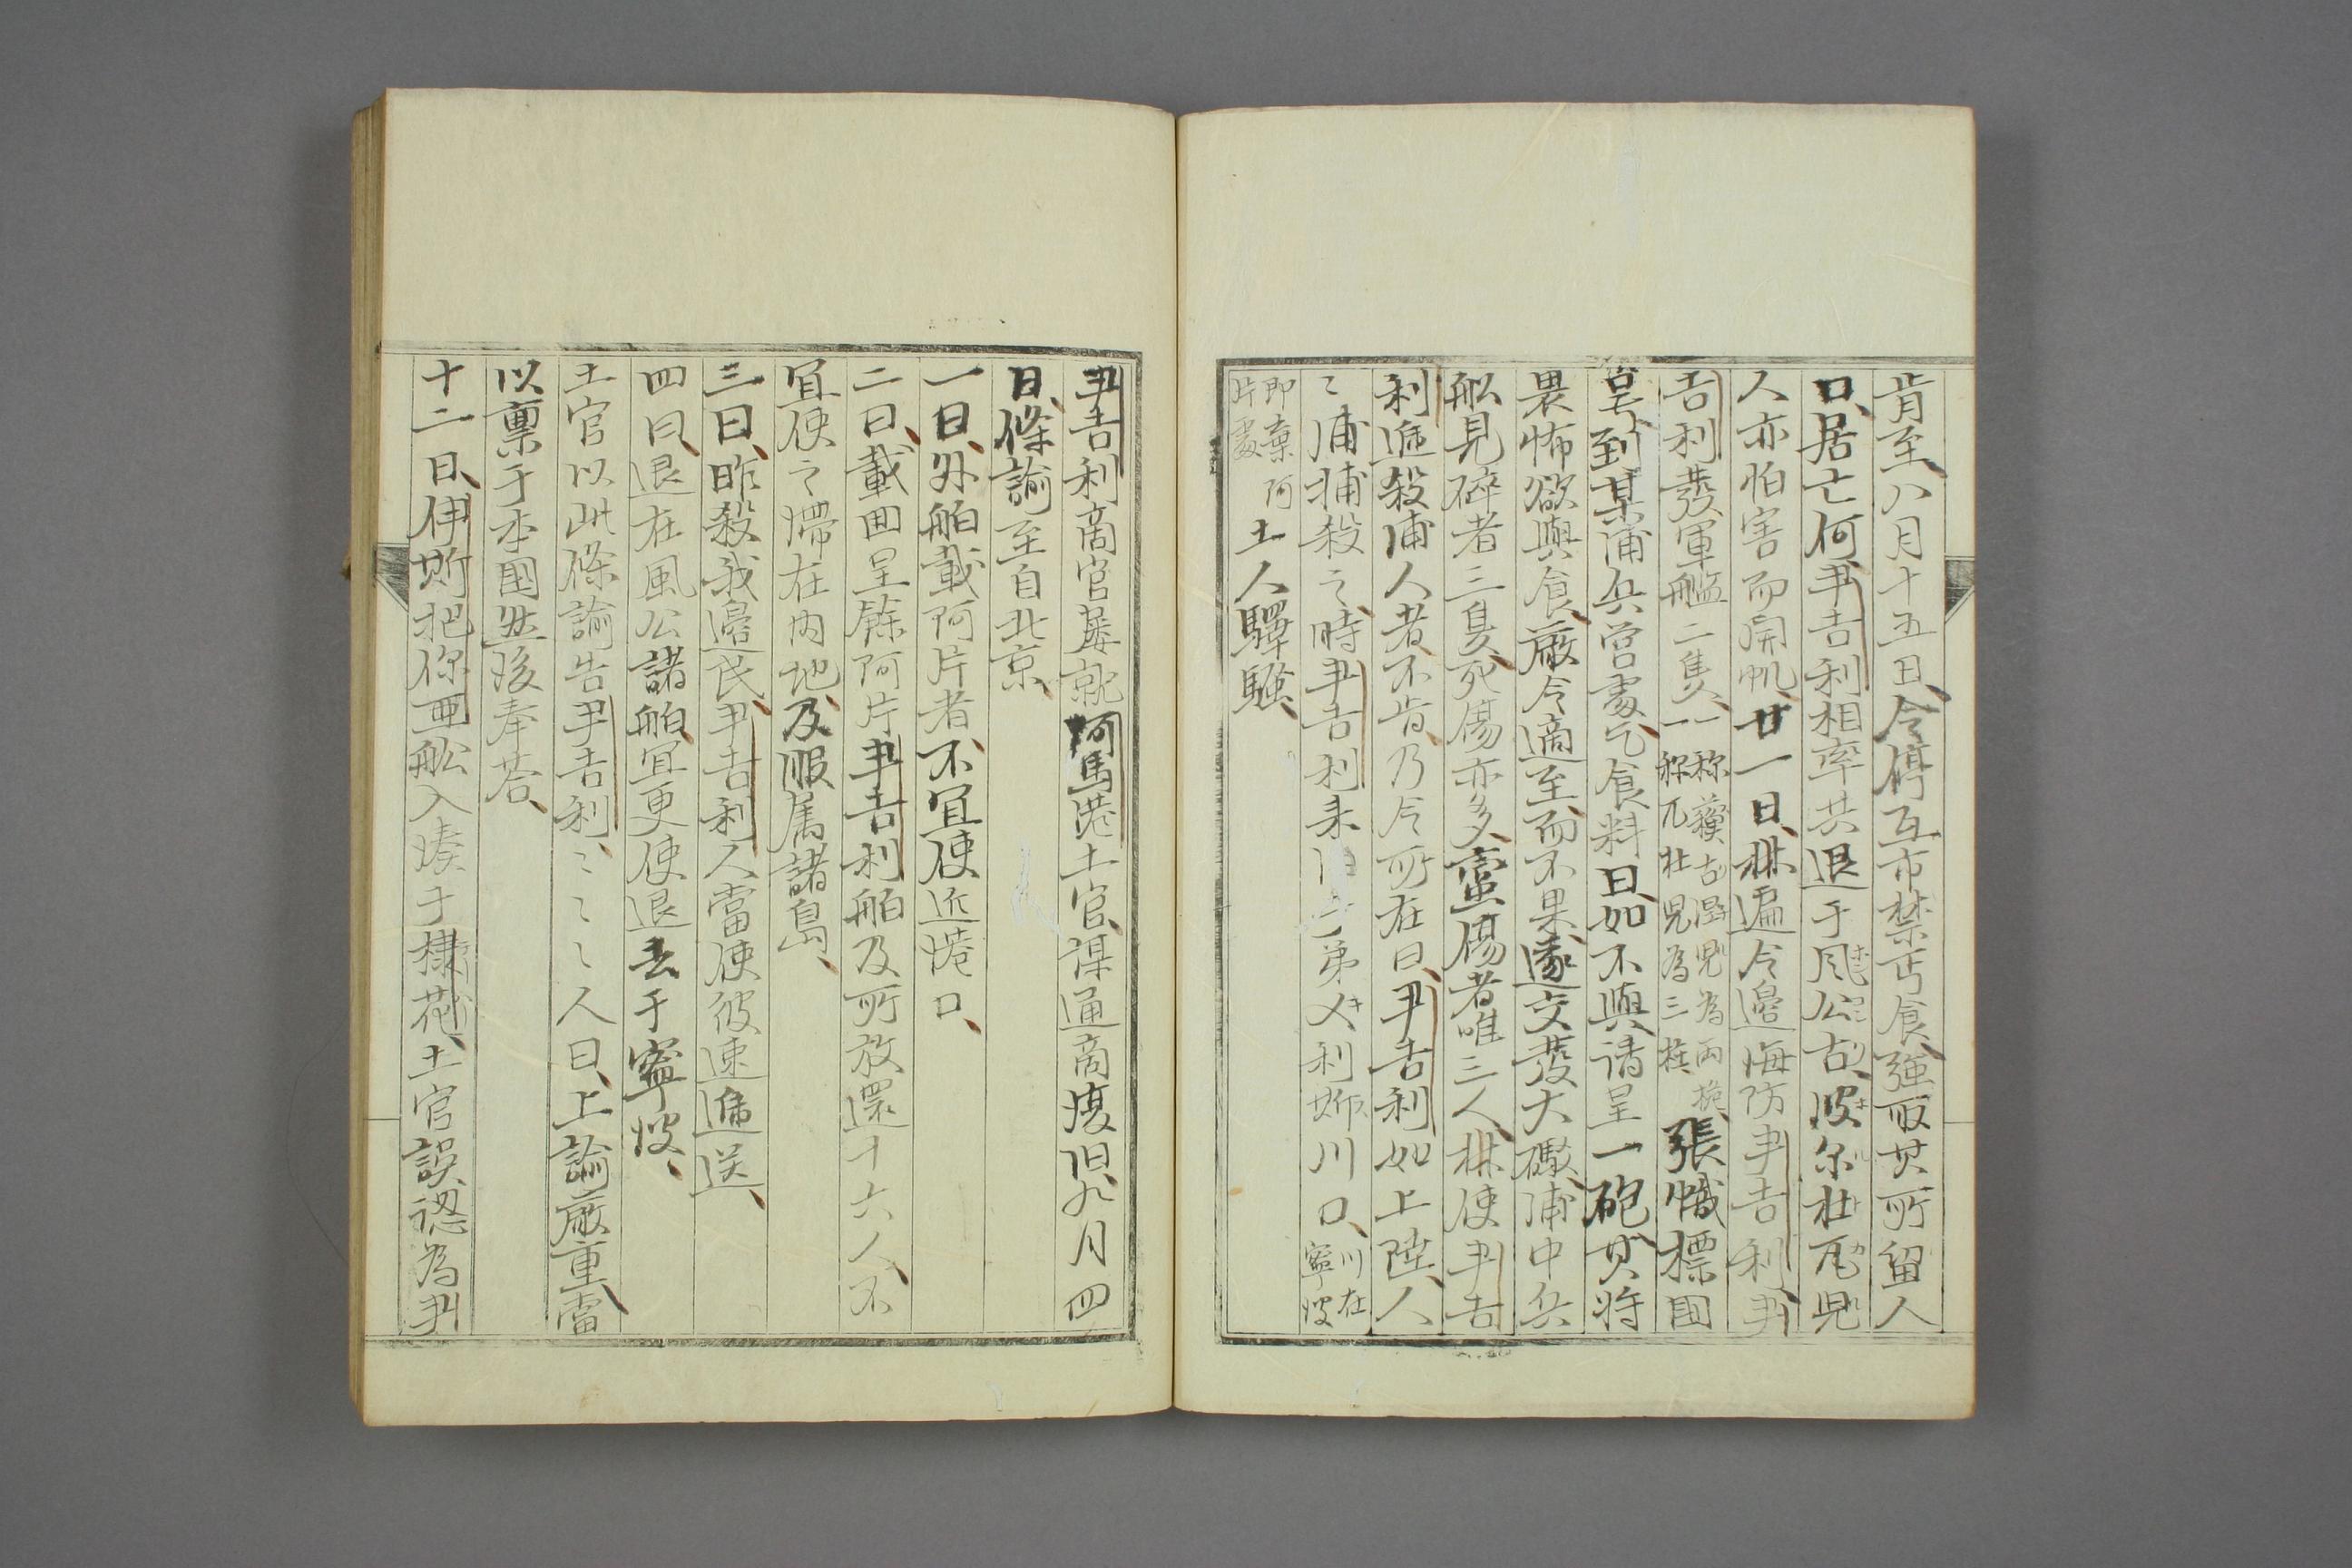 肯至八月十五日令停互市禁丐食強取其所留人
口居亡何尹吉利相率共退于風公古波尓杜瓦児
人亦怕害而開帆廿一日林遍令邊海防尹吉利尹
吉利發軍艦二隻一称 古 児為兩桅
一称瓦杜児為三桅張幟標国
号到某浦兵営處乞食料曰如不與請呈一砲其將
畏怖欲與食厳令適至而不果遂交發大礮浦中兵
船見碎者三隻死傷亦多蛮傷者唯三人林使尹吉
利逓殺浦人者不肯乃令所在曰尹吉利如上陸人
〻浦捕殺之時尹吉利来 弟乂利斯川口川在
寧波
即棄阿
片處土人驛騒
尹吉利商官 就阿馬港土官謀通商復旧九月四
日條諭至自北京
一曰外舶載阿片者不宜使近港口
二曰載回呈餘阿片尹吉利舶及所放還十六人不
宜使之滞在内地及服属諸島
三曰昨殺我邊民尹吉利人當使彼速逓送
四曰退在風公諸舶宜更使退去于寧波
土官以此條諭告尹吉利〻〻〻人曰上諭厳重當
以稟于本国然後奉答
十二日伊斯把你亜船入湊于棣花土官誤認為尹